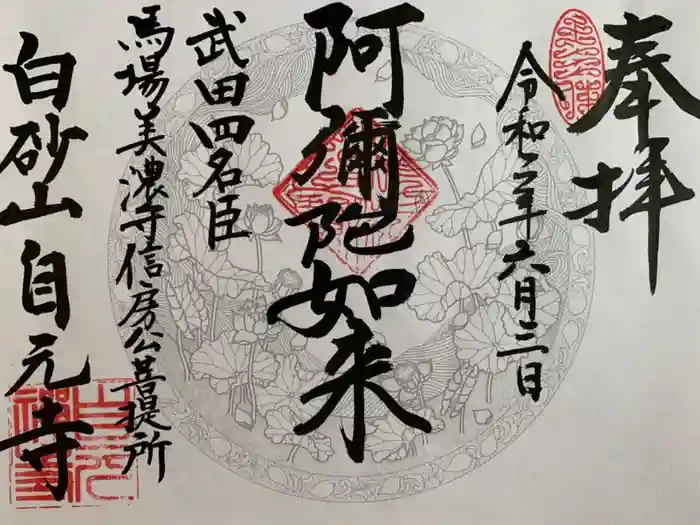 奉拝
令和二年六月三日
阿彌陀如来
武田四名臣
馬場美濃守信房公菩提所
白砂山自元寺